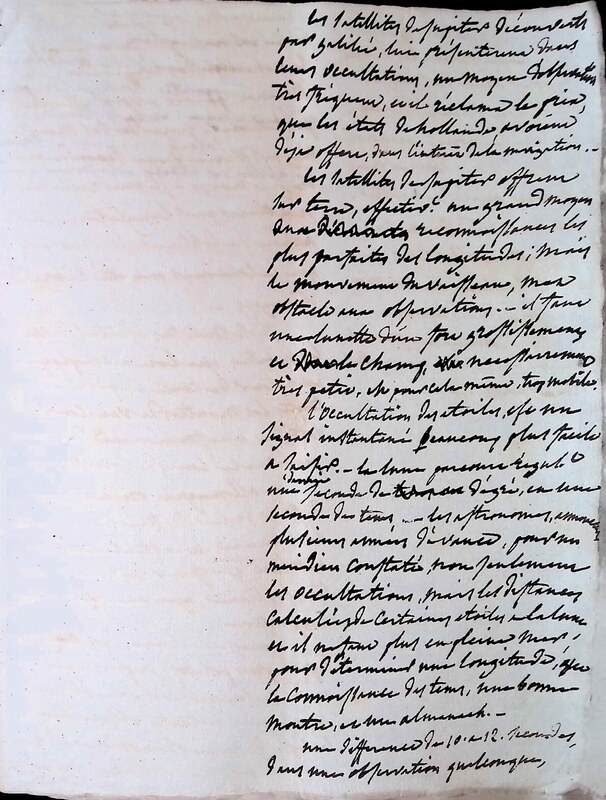 les satellites de jupiter découverts
par galilée, lui présenterent dans
leurs occultations, un moyen d'observation
très fréquent, et il réclama le prix,
que les états de hollande avoient
déja offert, dans l'intérêt de la navigation. –
les satellites de jupiter offrent
sur terre, effectiv.t un grand moyen
aux reconnoissances les
plus parfaites des longitudes; mais
le mouvement du vaisseau, met
obstacle aux observations. – il faut
une lunette d'un fort grossissement
et le champ, est nécessairement
très petit, et pour cela même, trop mobile.
l'occultation des etoiles, est un
signal instantané beaucoup plus facile
a saisir. – la lune parcourt
une seconde de degré, en une
seconde de tems – les astronomes, annoncent
plusieurs années d'avance, pour un
méridien constaté, non seulement
les occultations, mais les distances
calculées de certaines etoiles a la lune
et il ne faut plus en pleine mer,
pour déterminer une longitude, que
la connoissance du tems, une bonne
montre, et un almanach. –
une différence de 10. a 12. secondes,
dans une observation quelconque,